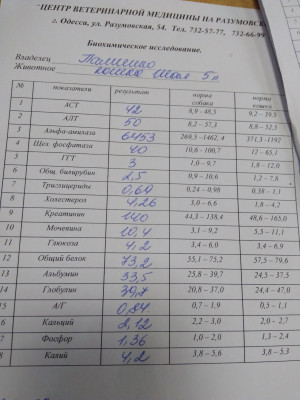 "ЦЕНТР ВЕТЕРИНАРНОЙ МЕДИЦИНЫ НА РАЗУМОВСК
г. Одесса, ул. Разумовская, 54. Тел. 732-57-77, 732-66-99
Биохимическое исследование.
Владелец
Животное кошка 5л
№ показатели результат норма собака норма кошка
АСТ 42 8,9 – 48,5 9,2 – 39,5
2 АЛТ 50 8,2 – 57,3 8,8 – 52,5
3 Альфа-амилаза 6453 269,5-1462,4 371,3-1192
4 Щел. фосфатаза 40 10,6 - 100,7 12 – 65,1
5 ГГТ 3 1,0 – 9,7 1,8 – 12,0
6 Общ. билирубин 2,5 0,9 – 10,6 1,2 – 7,8
7 Триглицериды 0,69 0,24 – 0,98 0,38 – 1,1
8 Холестерол 4,26 3,0 – 6,6 1,8 – 4,2
9 Креатинин 140 44,3 – 138,4 48,6 – 165,0
10 Мочевина 10,4 3,1 – 9,2 5,5 – 11,1
11 Глюкоза 4,2 3,4 – 6,0 3,4 – 6,9
12 Общий белок 73,2 55,1 – 75,2 57,5 – 79,6
13 Альбумин 33,5 25,8 – 39,7 24,5 – 37,5
14 Глобулин 39,7 20,8 – 37,0 24,4 – 47,0
15 А/Г 0,84 0,7 – 1,9 0,5 – 1,1
6 Кальций 2,12 2,2 – 3,0 2,0 - 2,7
7 Фосфор 1,36 1,0 – 2,0 1,3 – 2,4
8 Калий 4,2 3,8 – 5,6 3,8 – 5,3